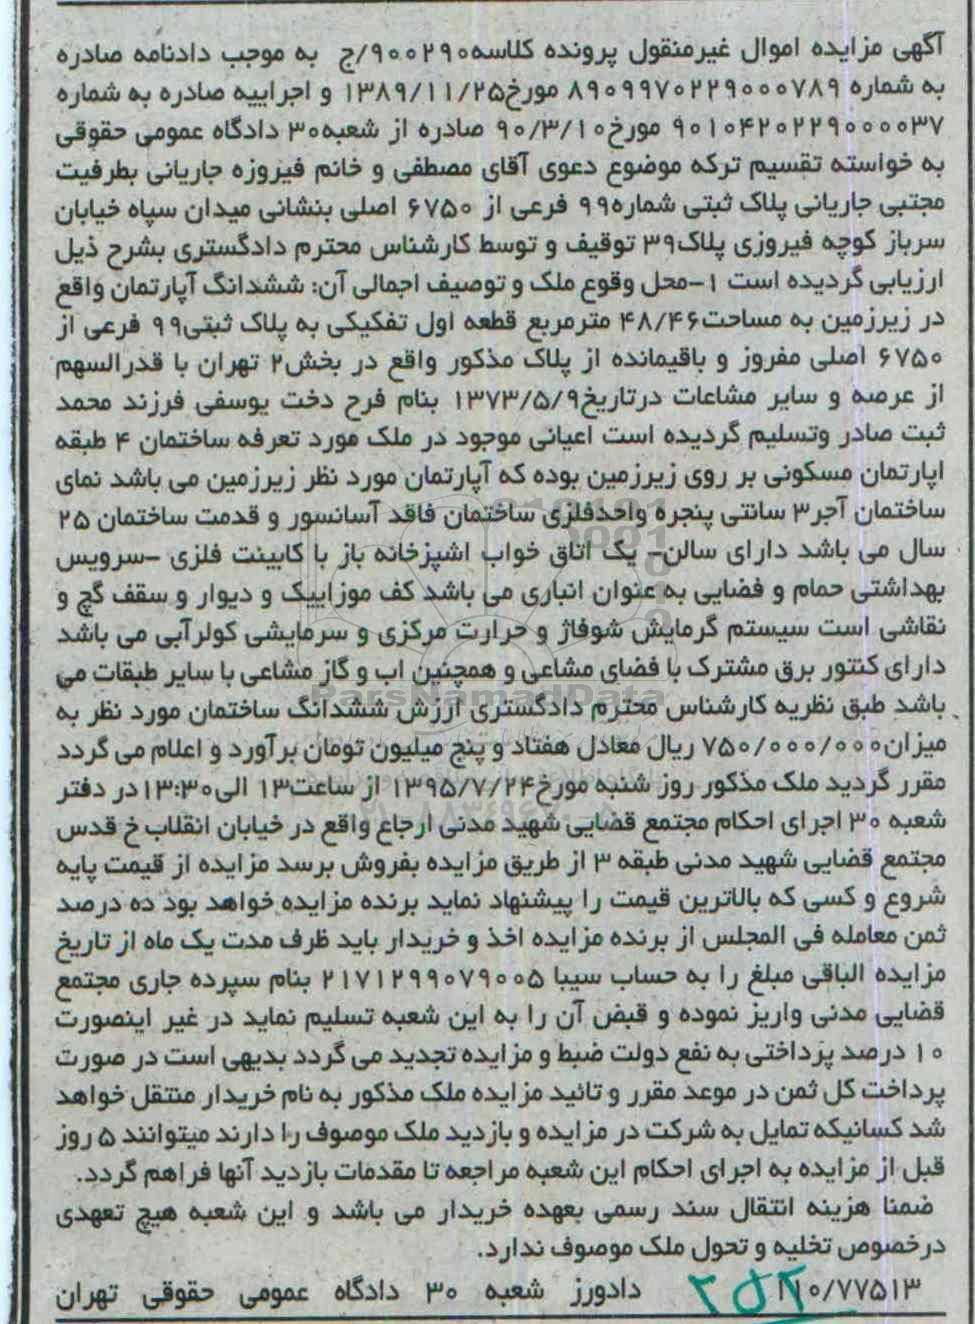 آگهی مزایده اموال غیرمنقول پرونده کلاسه۹۰۰۲۹۰/ج به موجب دادنامه صادره
به شماره ۸۹۰۹۹۷۰۲۲۹۰۰۰۷۸۹ مورخ۱۳۸۹/۱۱/۲۵ و اجراییه صادره به شماره
۹۰۱۰۴۲۰۲۲۹۰۰۰۰۳۷ مورخ۹۰/۳/۱۰ صادره از شعبه۳۰ دادگاه عمومی حقوقی
به خواسته تقسیم ترکه موضوع دعوی آقای مصطفی و خانم فیروزه جاریانی بطرفیت
مجتبی جاریانی پلاک ثبتی شماره۹۹ فرعی از ۶۷۵۰ اصلی بنشانی میدان سپاه خیابان
سرباز کوچه فیروزی پلاک۳۹ توقیف و توسط کارشناس محترم دادگستری بشرح ذیل
ارزیابی گردیده است ۱-محل وقوع ملک و توصیف اجمالی آن: ششدانگ آپارتمان واقع
در زیرزمین به مساحت۴۸/۴۶ مترمربع قطعه اول تفکیکی به پلاک ثبتی۹۹ فرعی از
۶۷۵۰ اصلی مفروز و باقیمانده از پلاک مذکور واقع در بخش۲ تهران با قدرالسهم
از عرصه و سایر مشاعات درتاریخ۱۳۷۳/۵/۹ بنام فرح دخت یوسفی فرزند محمد
ثبت صادر وتسلیم گردیده است اعیانی موجود در ملک مورد تعرفه ساختمان ۴ طبقه
اپارتمان مسکونی بر روی زیرزمین بوده که آپارتمان مورد نظر زیرزمین می باشد نمای
ساختمان آجر۳ سانتی پنجره واحدفلزی ساختمان فاقد آسانسور و قدمت ساختمان ۲۵
سال می باشد دارای سالن- یک اتاق خواب اشپزخانه باز با کابینت فلزی -سرویس
بهداشتی حمام و فضایی به عنوان انباری می باشد کف موزاییک و دیوار و سقف گچ و
نقاشی است سیستم گرمایش شوفاژ و حرارت مرکزی و سرمایشی کولرآبی می باشد
دارای کنتور برق مشترک با فضای مشاعی و همچنین اب و گاز مشاعی با سایر طبقات می
باشد طبق نظریه کارشناس محترم دادگستری ارزش ششدانگ ساختمان مورد نظر به
میزان۷۵۰/۰۰۰/۰۰۰ ریال معادل هفتاد و پنج میلیون تومان برآورد و اعلام می گردد
مقرر گردید ملک مذکور روز شنبه مورخ۱۳۹۵/۷/۲۴ از ساعت۱۳ الی۱۳:۳۰در دفتر
شعبه ۳۰ اجرای احکام مجتمع قضایی شهید مدنی ارجاع واقع در خیابان انقلاب خ قدس
مجتمع قضایی شهید مدنی طبقه ۳ از طریق مزایده بفروش برسد مزایده از قیمت پایه
شروع و کسی که بالاترین قیمت را پیشنهاد نماید برنده مزایده خواهد بود ده درصد
ثمن معامله فی المجلس از برنده مزایده اخذ و خریدار باید ظرف مدت یک ماه از تاریخ
مزایده الباقی مبلغ را به حساب سیبا ۲۱۷۱۲۹۹۰۷۹۰۰۵ بنام سپرده جاری مجتمع
قضایی مدنی واریز نموده و قبض آن را به این شعبه تسلیم نماید در غیر اینصورت
۱۰ درصد پرداختی به نفع دولت ضبط و مزایده تجدید می گردد بدیهی است در صورت
پرداخت کل ثمن در موعد مقرر و تائید مزایده ملک مذکور به نام خریدار منتقل خواهد
شد کسانیکه تمایل به شرکت در مزایده و بازدید ملک موصوف را دارند میتوانند ۵ روز
قبل از مزایده به اجرای احکام این شعبه مراجعه تا مقدمات بازدید آنها فراهم گردد.
ضمنا هزینه انتقال سند رسمی بعهده خریدار می باشد و این شعبه هیچ تعهدی
درخصوص تخلیه و تحول ملک موصوف ندارد.
۱۱۰/۷۷۵۱۳ دادورز شعبه ۳۰ دادگاه عمومی حقوقی تهران
ParsNamadData